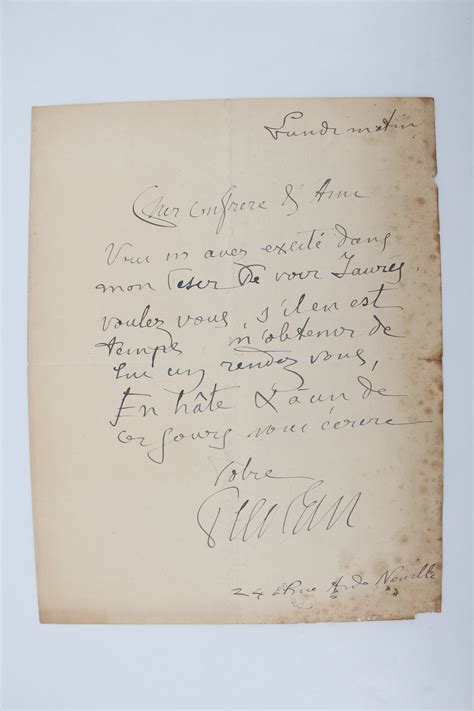 Lundi matin
Cher confrere & Ami
Vous m avez excité dans
mon desir de voir Jaures.
voulez vous, s'il en est
temps, m'obtenir de
lui un rendez vous,
En hâte & à un de
ces jours vous écrire
Votre
24 Rue A. de Neuville